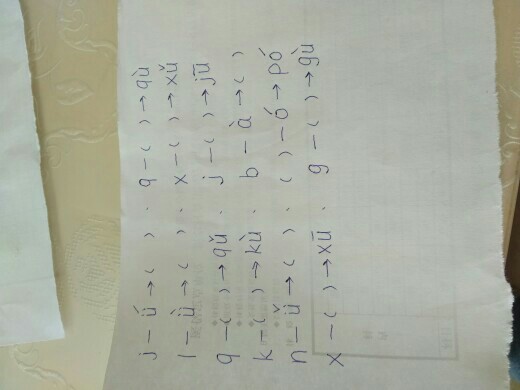 j — ǘ → ( ) . q — ( ) → qù
l — ǜ → ( ) . x — ( ) → xǔ
q — ( ) → qǔ . j — ( ) → jū
k — ( ) → kù . b — à → ( )
n — ǚ → ( ) . ( ) — ó → pó
x — ( ) → xū . g — ( ) → gù